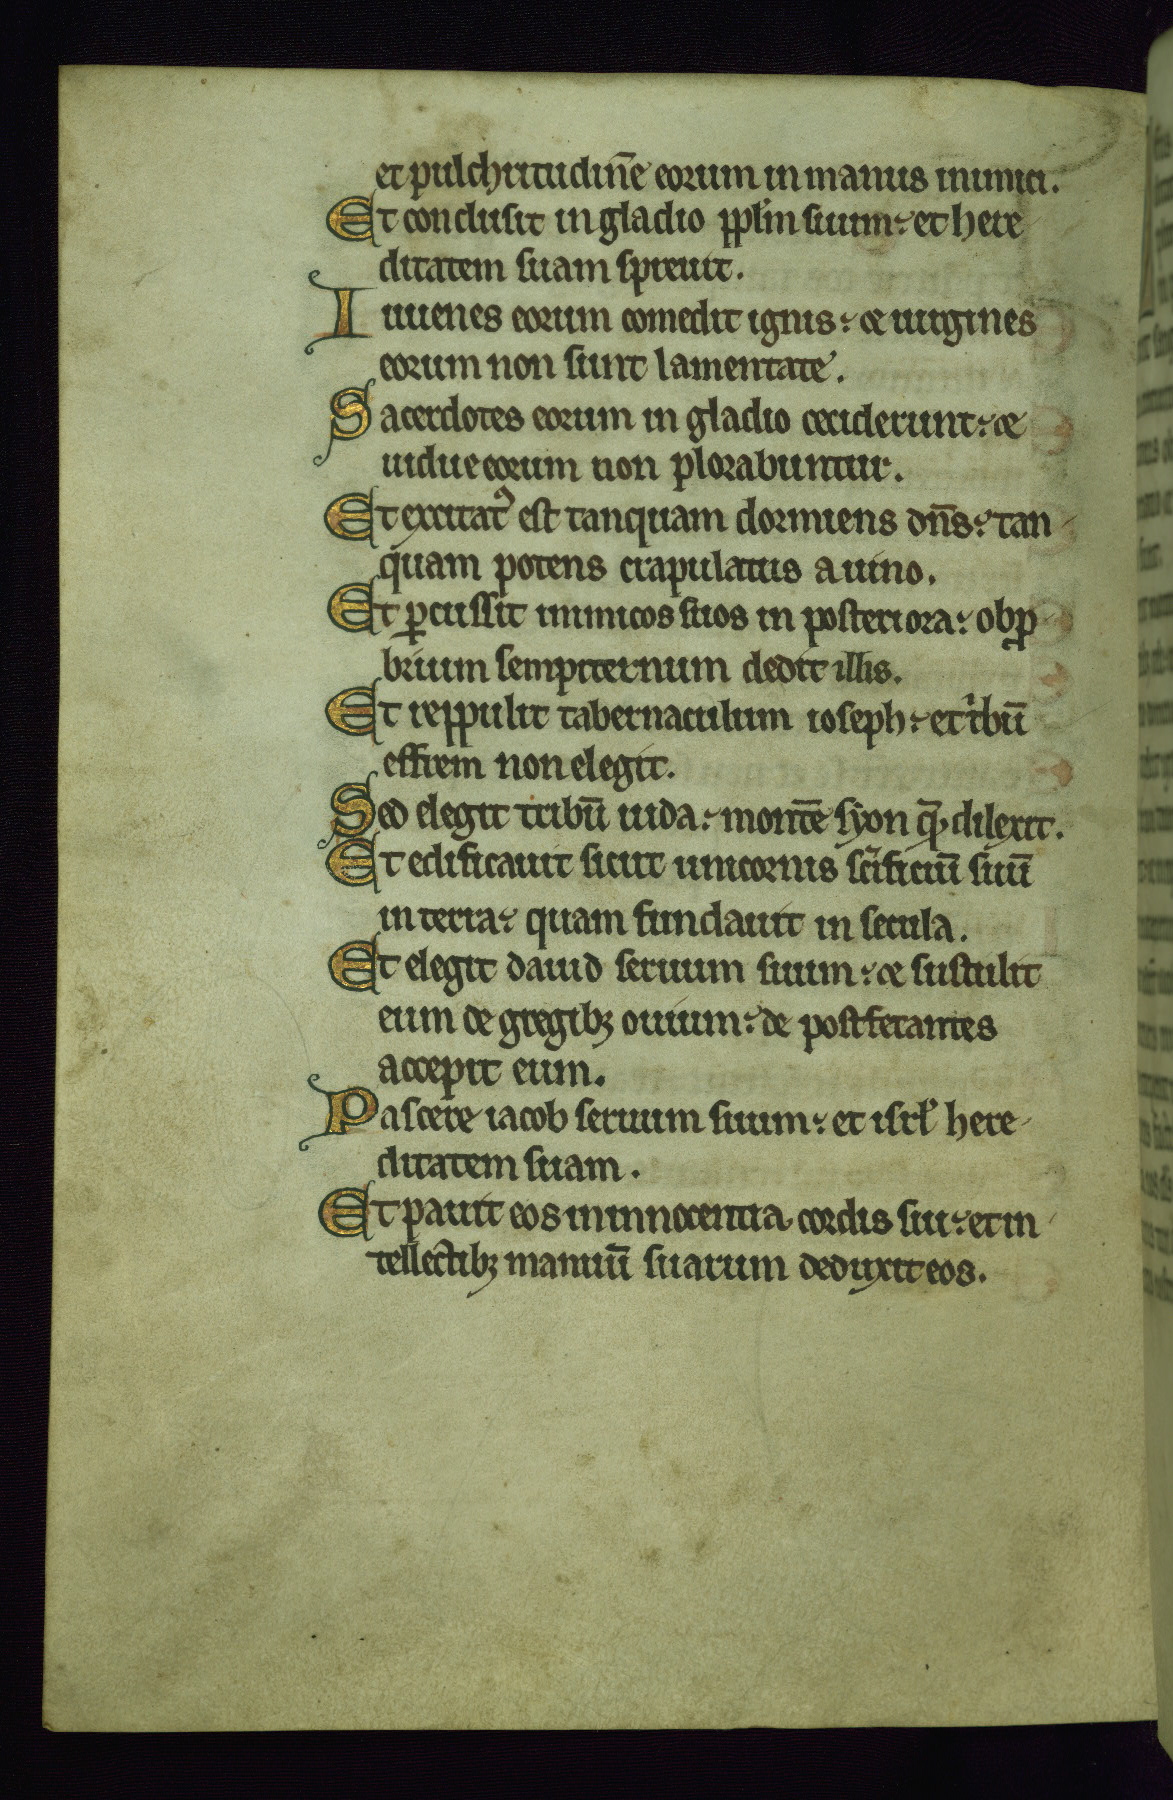 et pulchritudinē eorum in manus inimici.
Et conclusit in gladio pplm̄ suum: et here
ditatem suam spreuit.
Iuuenes eorum comedit ignis: & uirgines
eorum non sunt lamentate.
Sacerdotes eorum in gladio ceciderunt: &
uidue eorum non plorabuntur.
Et excitatꝰ est tanquam dormiens dn̄s: tan
quam potens crapulatus a uino.
Et ꝑcussit inimicos suos in posteriora: obꝓ
brium sempiternum dedit illis.
Et reppulit tabernaculum ioseph: et tⁱbū
effrem non elegit.
Sed elegit tribū iuda: montē syon quē dilexit.
Et edificauit sicut unicornis scīficiū suū
in terra: quam fundauit in secula.
Et elegit dauid seruum suum: & sustulit
eum de gregibꝫ ouium: de post fetantes
accepit eum.
Pascere iacob seruum suum: et isrl̄ here
ditatem suam.
Et pauit eos in innocentia cordis sui: et in
tellectibꝫ manuū suarum deduxit eos.